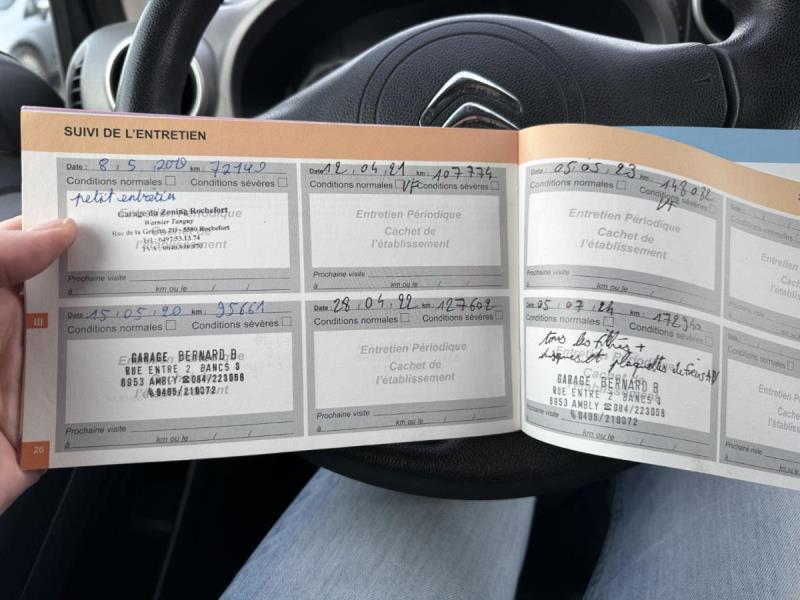 SUIVI DE L'ENTRETIEN
Date : 8 . 5 . 2019 km : 72149
Conditions normales Conditions sévères
petit entretien
Garage du Zoning Rochefort
Warnier Tanguy
5580 Rochefort
Tél : 0497/53.13.74
Prochaine visite
à km ou le / /
Date : 15 . 05 . 20 km : 95661
Conditions normales Conditions sévères
GARAGE BERNARD B
RUE ENTRE 2 BANCS 3
6953 AMBLY ☎084/223058
0495/210072
Prochaine visite
à km ou le / /
Date : 12 . 04 . 21 km : 107774
Conditions normales VF Conditions sévères
Entretien Périodique
Cachet de
l'établissement
Prochaine visite
à km ou le / /
Date : 28 . 04 . 22 km : 127602
Conditions normales Conditions sévères
Entretien Périodique
Cachet de
l'établissement
Prochaine visite
à km ou le / /
Date : 05 . 05 . 23 km : 148082
Conditions normales Conditions sévères
VF
Entretien Périodique
Cachet de
l'établissement
Prochaine visite
à km ou le / /
Date : 05 . 07 . 24 km : 172940
Conditions normales Conditions sévères
tous les filtres +
disques et plaquettes de freins AV
GARAGE BERNARD B
RUE ENTRE 2 BANCS
6953 AMBLY ☎084/223058
0495/210072
Prochaine visite
à km ou le / /
III
26